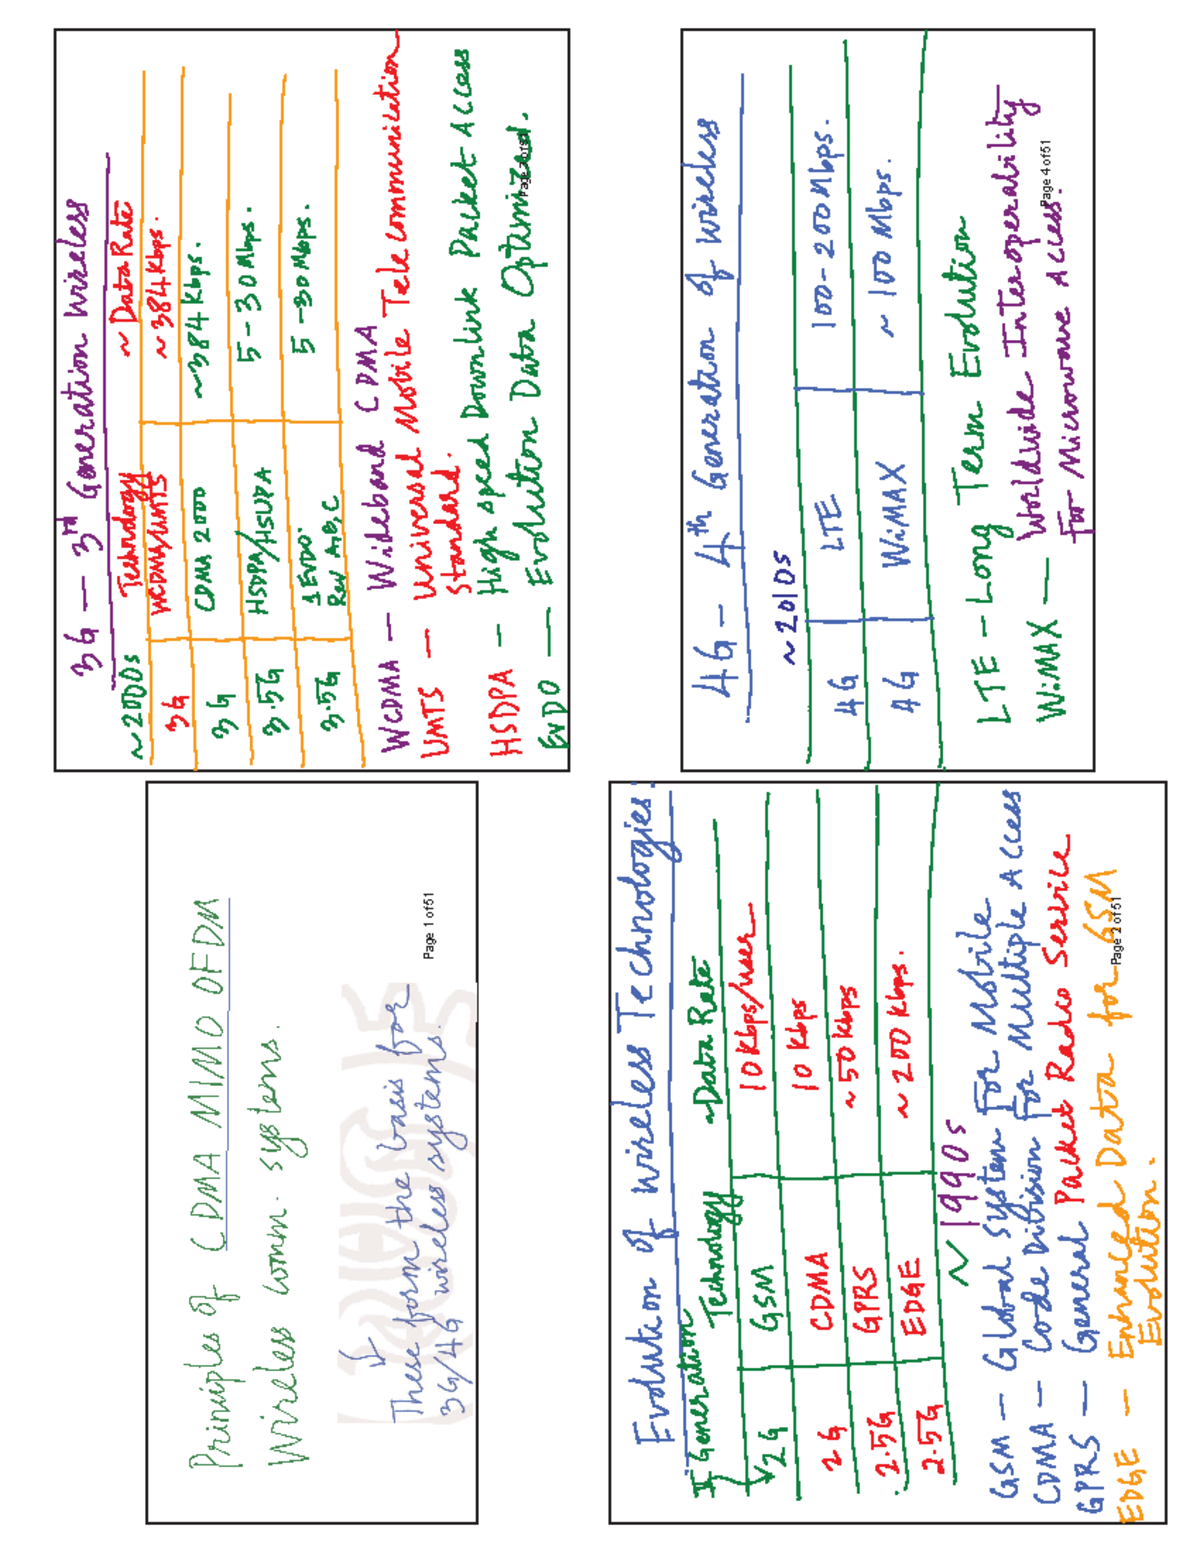 Principles of CDMA MIMO OFDM
Wireless Comm. systems.
These form the basis for
3G/4G wireless systems.
Page 1 of 51
Evolution of wireless Technologies.
Generation Technology ~Data Rate
2G GSM 10 Kbps/user
2G CDMA 10 Kbps
2.5G GPRS ~50 Kbps
2.5G EDGE ~ 200 Kbps.
~ 1990s
GSM — Global System For Mobile
CDMA — Code Division For Multiple Access
GPRS — General Packet Radio Service
EDGE — Enhanced Data for GSM
Evolution.
Page 2 of 51
3G — 3rd Generation Wireless
~2000s Technology ~ Data Rate
3G WCDMA/UMTS ~ 384 Kbps.
3G CDMA 2000 ~384 Kbps.
3.5G HSDPA/HSUPA 5-30 Mbps.
3.5G 1 EVDO Rev A,B,C 5-30 Mbps.
WCDMA — Wideband CDMA
UMTS — Universal Mobile Telecommunication
Standard.
HSDPA — High Speed Downlink Packet Access
EVDO — Evolution Data Optimized.
4G - 4th Generation of wireless
~ 2010s
4G LTE 100-200 Mbps.
4G WiMAX ~ 100 Mbps.
LTE - Long Term Evolution
WiMAX — Worldwide Interoperability
For Microwave Access.
Page 4 of 51